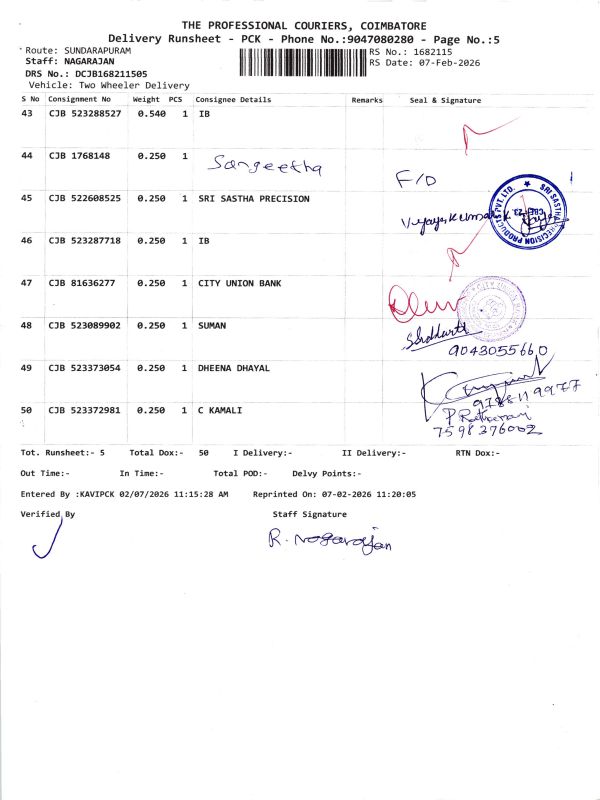 THE PROFESSIONAL COURIERS, COIMBATORE
Delivery Runsheet - PCK - Phone No.:9047080280 - Page No.:5
Route: SUNDARAPURAM RS No.: 1682115
Staff: NAGARAJAN RS Date: 07-Feb-2026
DRS No.: DCJB168211505
Vehicle: Two Wheeler Delivery
S No Consignment No Weight PCS Consignee Details Remarks Seal & Signature
43 CJB 523288527 0.540 1 IB
44 CJB 1768148 0.250 1 Sangeetha F/D
45 CJB 522608525 0.250 1 SRI SASTHA PRECISION Vijayakumar
SRI SASTHA PRECISION PRODUCTS PVT LTD. CBE-23.
46 CJB 523287718 0.250 1 IB
47 CJB 81636277 0.250 1 CITY UNION BANK
48 CJB 523089902 0.250 1 SUMAN Siddharth
9043055660
49 CJB 523373054 0.250 1 DHEENA DHAYAL
9788119977
50 CJB 523372981 0.250 1 C KAMALI
7598376002
Tot. Runsheet:- 5 Total Dox:- 50 I Delivery:- II Delivery:- RTN Dox:-
Out Time:- In Time:- Total POD:- Delvy Points:-
Entered By :KAVIPCK 02/07/2026 11:15:28 AM Reprinted On: 07-02-2026 11:20:05
Verified By Staff Signature
R. Nagarajan